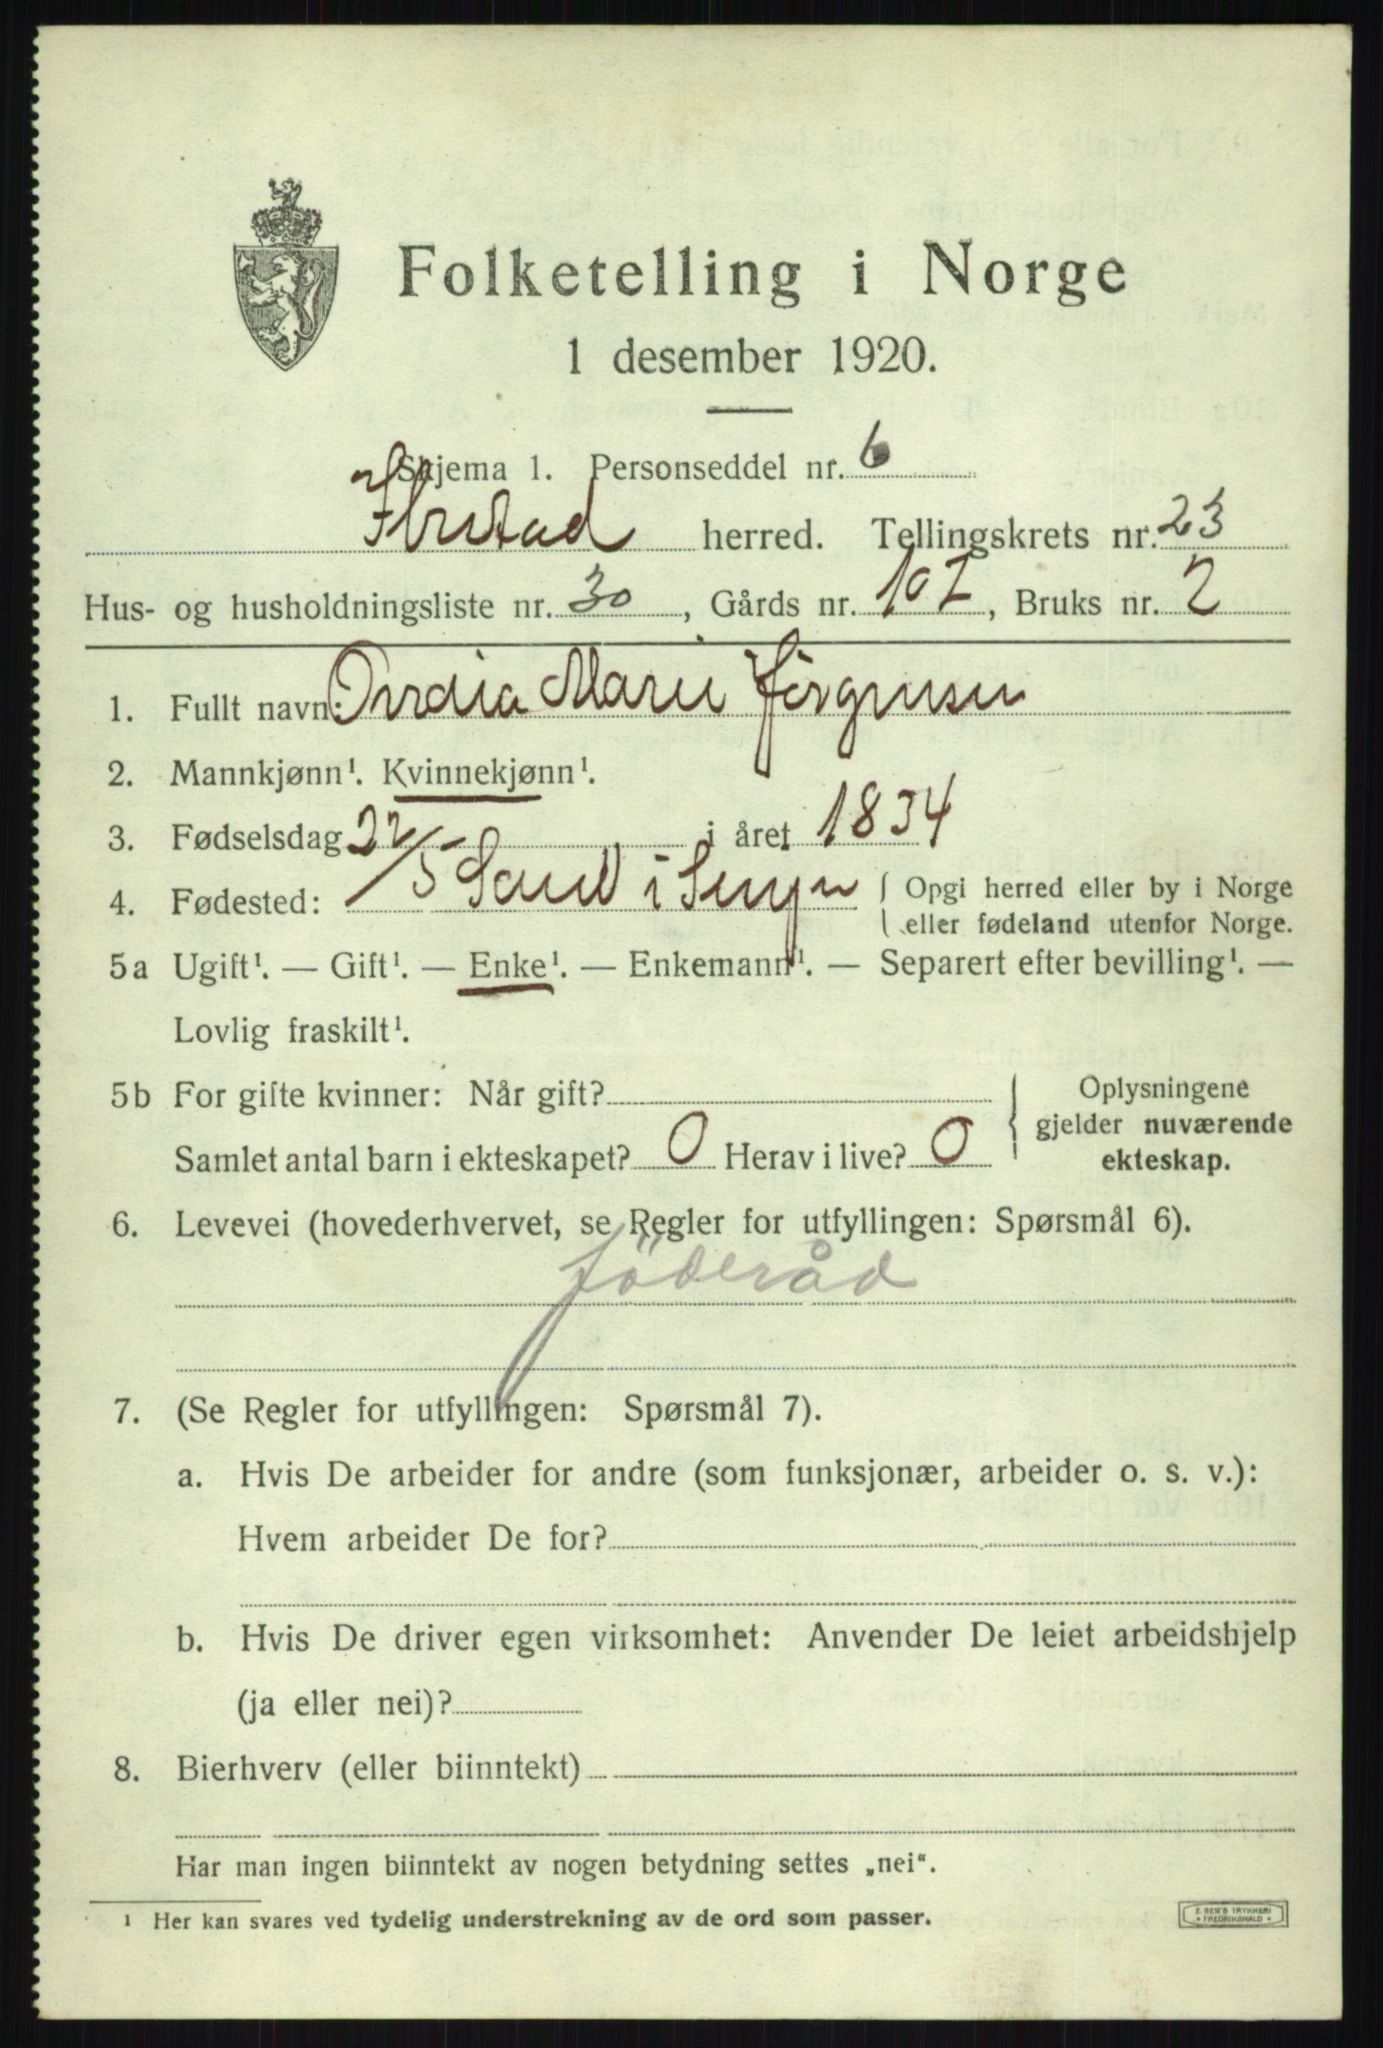 Folketelling i Norge
1 desember 1920.
Skjema 1. Personseddel nr. 6
Ibestad herred. Tellingskrets nr. 23
Hus- og husholdningsliste nr. 30, Gårds nr. 107, Bruks nr. 2
1. Fullt navn: Marie Jørgensen
2. Mannkjønn¹. Kvinnekjønn¹.
3. Fødselsdag 22/5 i året 1834
4. Fødested: Sand i Senjen { Opgi herred eller by i Norge
eller fødeland utenfor Norge.
5a Ugift¹. — Gift¹. — Enke¹. — Enkemann¹. — Separert efter bevilling¹. —
Lovlig fraskilt¹.
5b For gifte kvinner: Når gift?
Samlet antal barn i ekteskapet? 0 Herav i live? 0
Oplysningene
gjelder nuværende
ekteskap.
6. Levevei (hovederhvervet, se Regler for utfyllingen: Spørsmål 6).
föderåd
7. (Se Regler for utfyllingen: Spørsmål 7).
a. Hvis De arbeider for andre (som funksjonær, arbeider o. s. v.):
Hvem arbeider De for?
b. Hvis De driver egen virksomhet: Anvender De leiet arbeidshjelp
(ja eller nei)?
8. Bierhverv (eller biinntekt)
Har man ingen biinntekt av nogen betydning settes „nei".
¹ Her kan svares ved tydelig understrekning av de ord som passer.
E. SEM'S TRYKKERI
FREDRIKSHALD